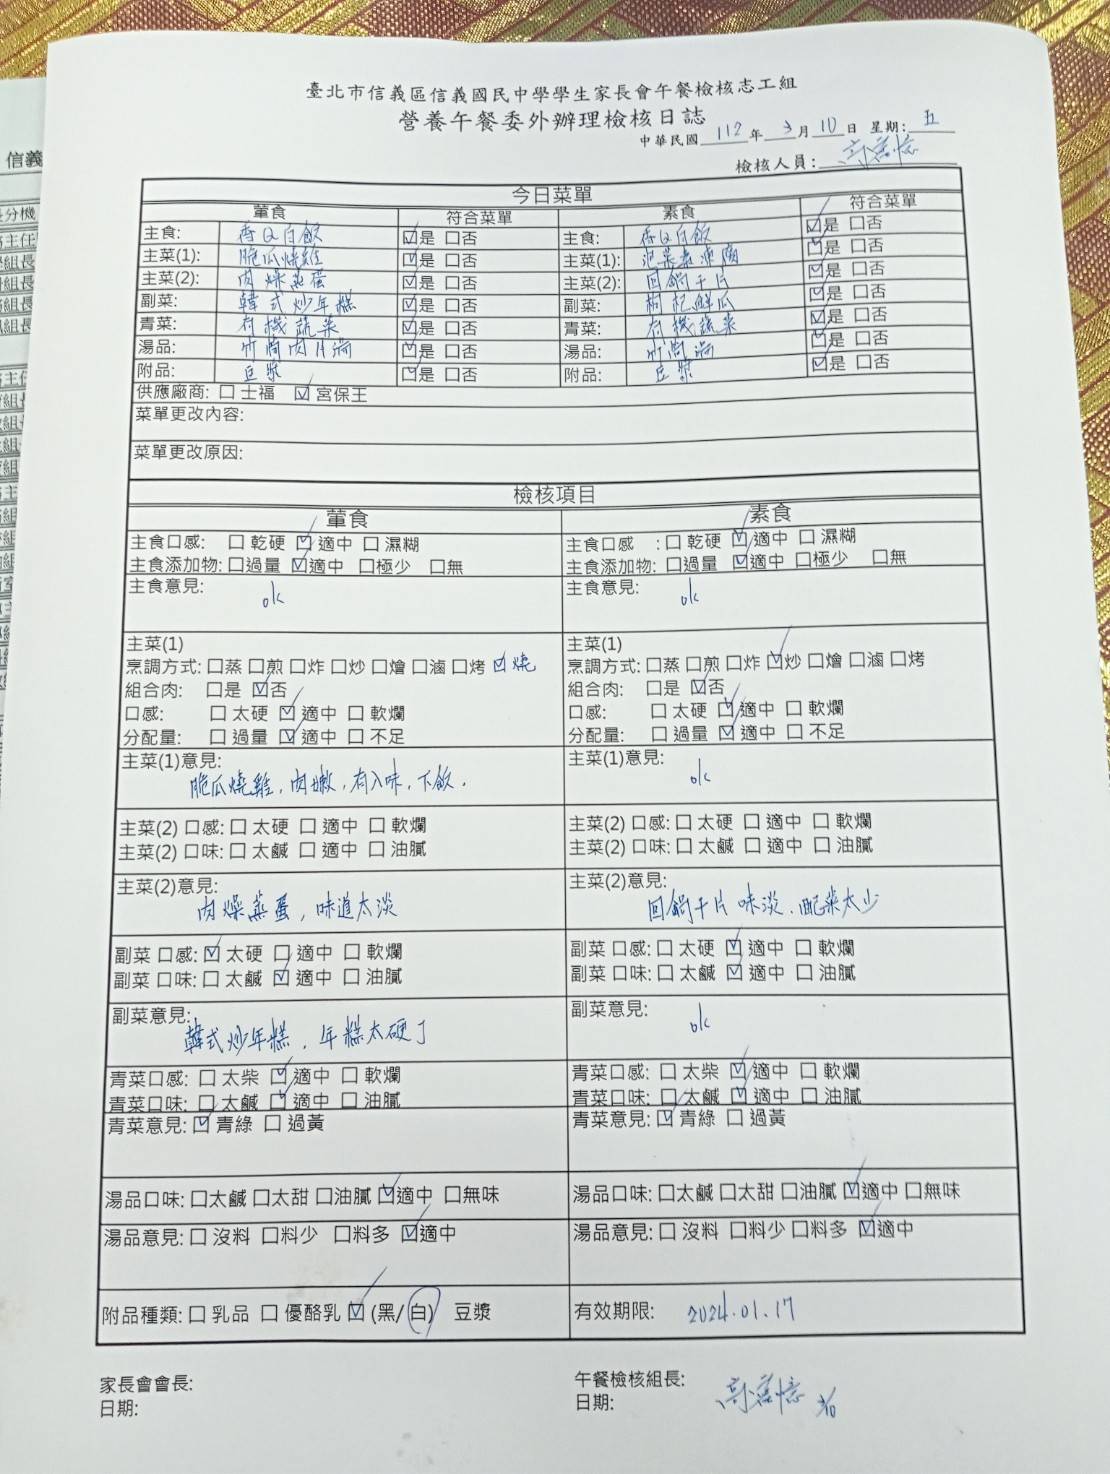 臺北市信義區信義國民中學學生家長會午餐檢核志工組
營養午餐委外辦理檢核日誌
中華民國 112 年 3 月 10 日 星期: 五
檢核人員:
今日菜單
葷食 符合菜單 素食 符合菜單
主食: 香Q白飯 ☑是 口否 主食: 香Q白飯 ☑是 口否
主菜(1): 脆瓜燒雞 ☑是 口否 主菜(1): 泡菜素凍腐 ☑是 口否
主菜(2): 肉燥蒸蛋 ☑是 口否 主菜(2): 回鍋干片 ☑是 口否
副菜: 韓式炒年糕 ☑是 口否 副菜: 枸杞鮮瓜 ☑是 口否
青菜: 有機蔬菜 ☑是 口否 青菜: 有機蔬菜 ☑是 口否
湯品: 竹筍肉片湯 ☑是 口否 湯品: 竹筍湯 ☑是 口否
附品: 豆漿 ☑是 口否 附品: 豆漿 ☑是 口否
供應廠商: 口 士福 ☑ 宮保王
菜單更改內容:
菜單更改原因:
檢核項目
葷食 素食
主食口感: 口 乾硬 ☑ 適中 口 濕糊 主食口感 : 口 乾硬 ☑ 適中 口 濕糊
主食添加物: 口過量 ☑適中 口極少 口無 主食添加物: 口過量 ☑適中 口極少 口無
主食意見: ok 主食意見: ok
主菜(1) 主菜(1)
烹調方式: 口蒸 口煎 口炸 口炒 口燴 口滷 口烤 ☑燒 烹調方式: 口蒸 口煎 口炸 ☑炒 口燴 口滷 口烤
組合肉: 口是 ☑否 組合肉: 口是 ☑否
口感: 口 太硬 ☑ 適中 口 軟爛 口感: 口 太硬 ☑ 適中 口 軟爛
分配量: 口 過量 ☑ 適中 口 不足 分配量: 口 過量 ☑ 適中 口 不足
主菜(1)意見: 主菜(1)意見:
脆瓜燒雞,肉嫩,有入味,下飯. ok
主菜(2) 口感: 口 太硬 口 適中 口 軟爛 主菜(2) 口感: 口 太硬 口 適中 口 軟爛
主菜(2) 口味: 口 太鹹 口 適中 口 油膩 主菜(2) 口味: 口 太鹹 口 適中 口 油膩
主菜(2)意見: 主菜(2)意見:
肉燥蒸蛋,味道太淡 回鍋干片 味淡、配菜太少
副菜 口感: ☑ 太硬 口 適中 口 軟爛 副菜 口感: 口 太硬 ☑ 適中 口 軟爛
副菜 口味: 口 太鹹 ☑ 適中 口 油膩 副菜 口味: 口 太鹹 ☑ 適中 口 油膩
副菜意見: 副菜意見:
韓式炒年糕,年糕太硬了 ok
青菜口感: 口 太柴 ☑ 適中 口 軟爛 青菜口感: 口 太柴 ☑ 適中 口 軟爛
青菜口味: 口 太鹹 ☑ 適中 口 油膩 青菜口味: 口 太鹹 ☑ 適中 口 油膩
青菜意見: ☑ 青綠 口 過黃 青菜意見: ☑ 青綠 口 過黃
湯品口味: 口太鹹 口太甜 口油膩 ☑適中 口無味 湯品口味: 口太鹹 口太甜 口油膩 ☑適中 口無味
湯品意見: 口 沒料 口料少 口料多 ☑適中 湯品意見: 口 沒料 口料少 口料多 ☑適中
附品種類: 口 乳品 口 優酪乳 ☑ (黑/白) 豆漿 有效期限: 2024.01.17
家長會會長: 午餐檢核組長:
日期: 日期: 3/10